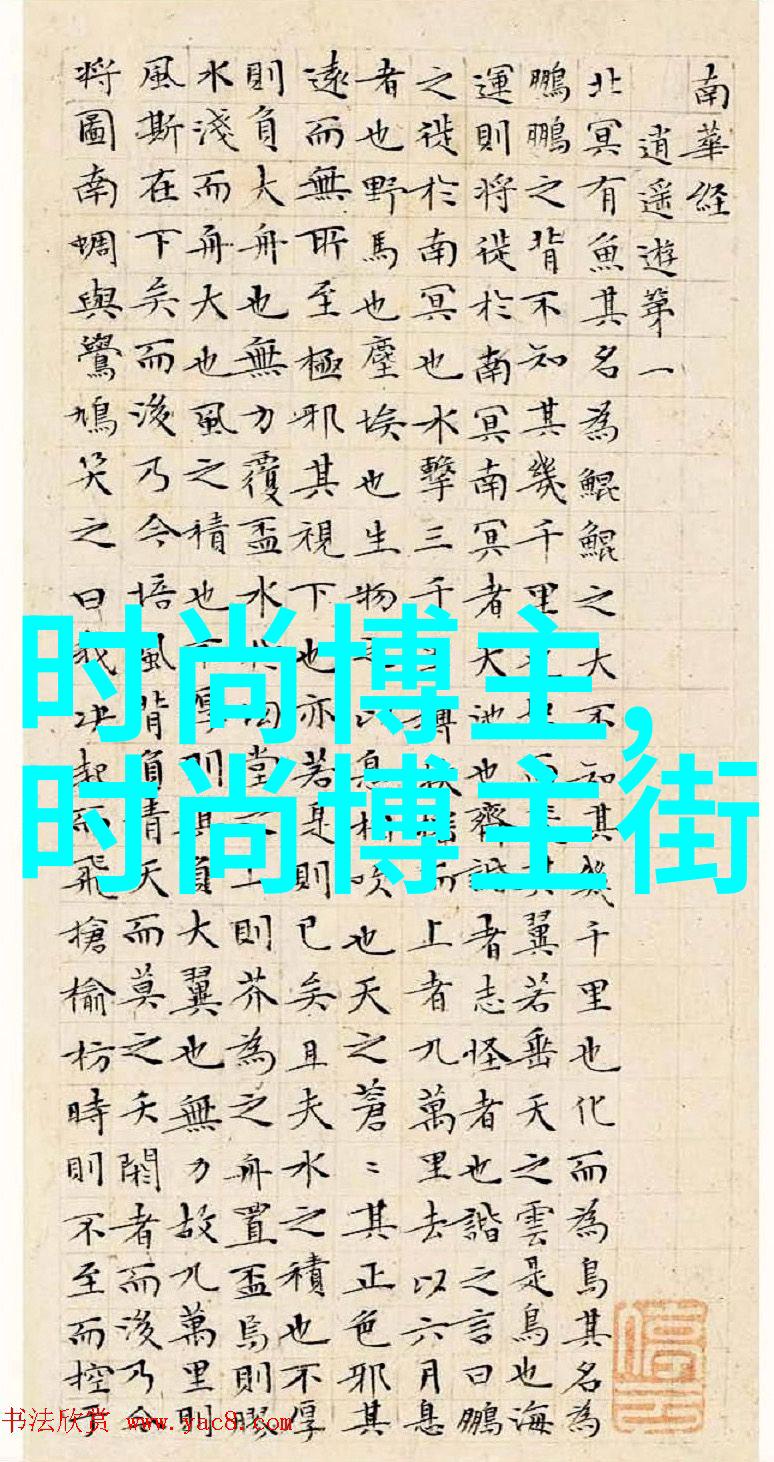 时尚博主,
时尚博主街
南華経
逍遥遊第一
北冥有魚其名為鯤鯤之大不知其幾千里也化而為鳥其名為
鵬鵬之背不知其幾千里而其翼若垂天之雲是鳥也海
運則将徙於南冥南冥者大池也齊諧者志怪者也諧之言曰鵬
之徙於南冥也水擊三千摶而上者九萬里去以六月息
者也野馬也塵埃也生物以息相吹也天之蒼〻其正色邪其
遠而無所至極邪其視下也亦若是則已矣且夫水之積也不厚
則負大舟也無力覆盃水堂上則芥為之舟置盃焉則膠
水淺而舟大也風之積也不厚則其負大翼也無力故九萬里則
風斯在下矣而後乃今培風背負青天而莫之夭閼者而後乃今
将圖南蜩與鷽鳩笑之曰我决起而飛搶榆枋時則不至而控于
书法欣赏 www.yac8.com